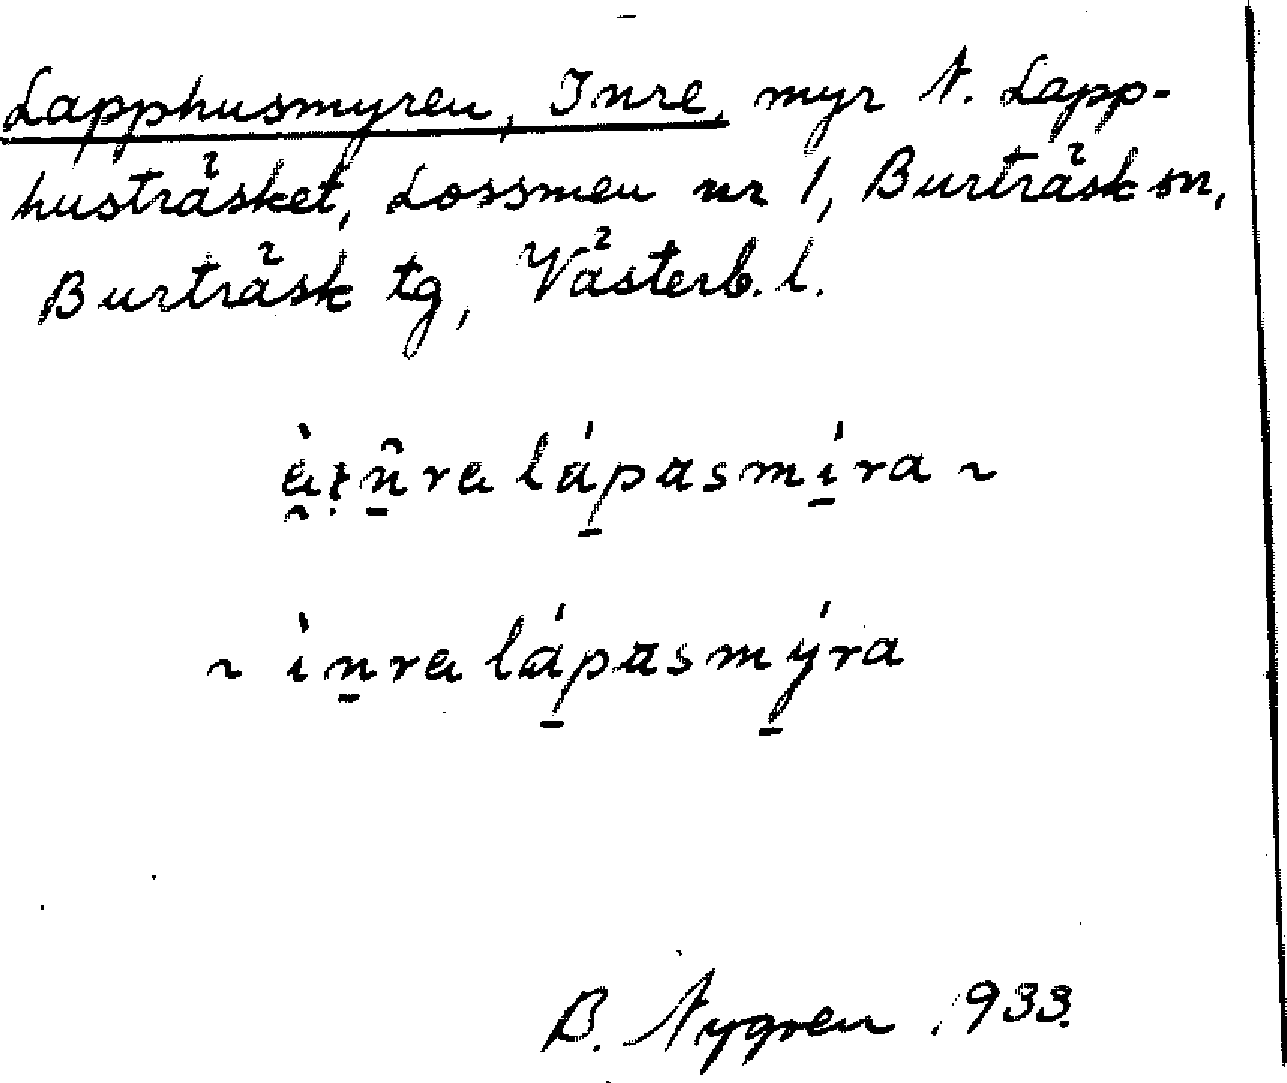 Lapphusmyren, Inre, myr N. Lapp-
husträsket, Lossmen nr 1, Burträsk sn,
Burträsk tg, Västerb. l.
lápasmíra ~
~ ìn̠ra lápasmýra
B. Nygren 1933.